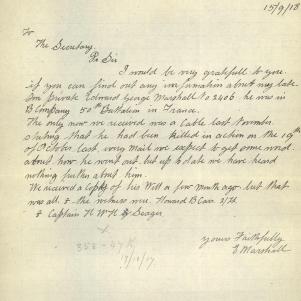 15/9/18
To
The Secretary.
Dr Sir
I would be very gratefull to you
if you can find out any information about my late
Son Private Edward George Marshall No 2406. he was in
B Company 50th Battalion in France.
The only news we received was a Cable last November
stating that he had been killed in action on the 19th
of October last, every Mail we expect to get some word
about how he went out but up to date we have heard
nothing further about him.
We received a Copy of his Will a few month ago but that
was all & the witness were Howard B Carr
& Captain H W H Seager
yours Faithfully
E Marshall